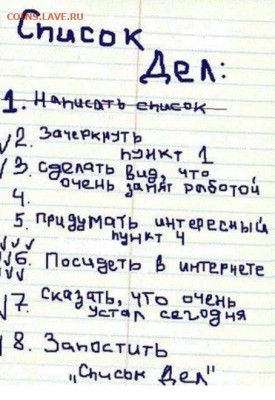 coins.lave.ru
Список
Дел:
1. Написать список
2. Зачеркнуть
пункт 1
3. Сделать вид, что
очень занят работой
4.
5. Придумать интересный
пункт 4
6. Посидеть в интернете
7. Сказать, что очень
устал сегодня
8. Запостить
„Список Дел"